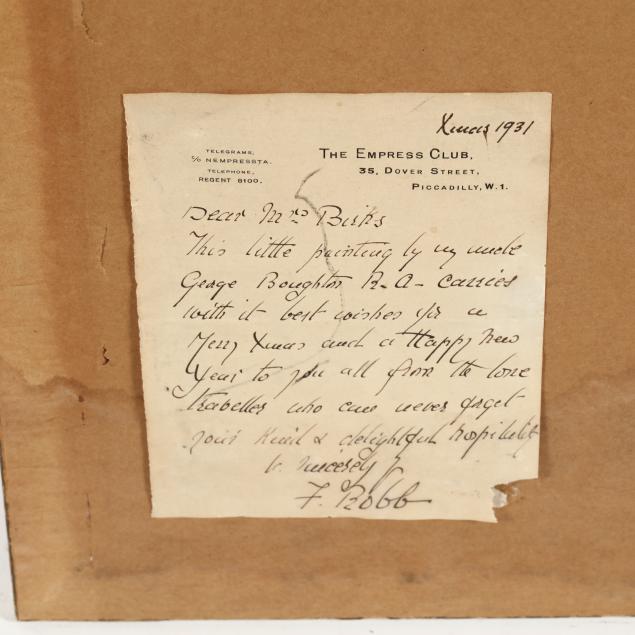 Xmas 1931
TELEGRAMS,
C/O NEMPRESSTA.
TELEPHONE,
REGENT 8100.
THE EMPRESS CLUB,
35, DOVER STREET,
PICCADILLY, W.1.
Dear Mrs Birks
This little painting by my uncle
George Boughton R.A- carries
with it best wishes for a
Merry Xmas and a Happy New
Year to you all from the lone
traveller who can never forget
your kind & delightful hospitality
sincerely
F. Robb